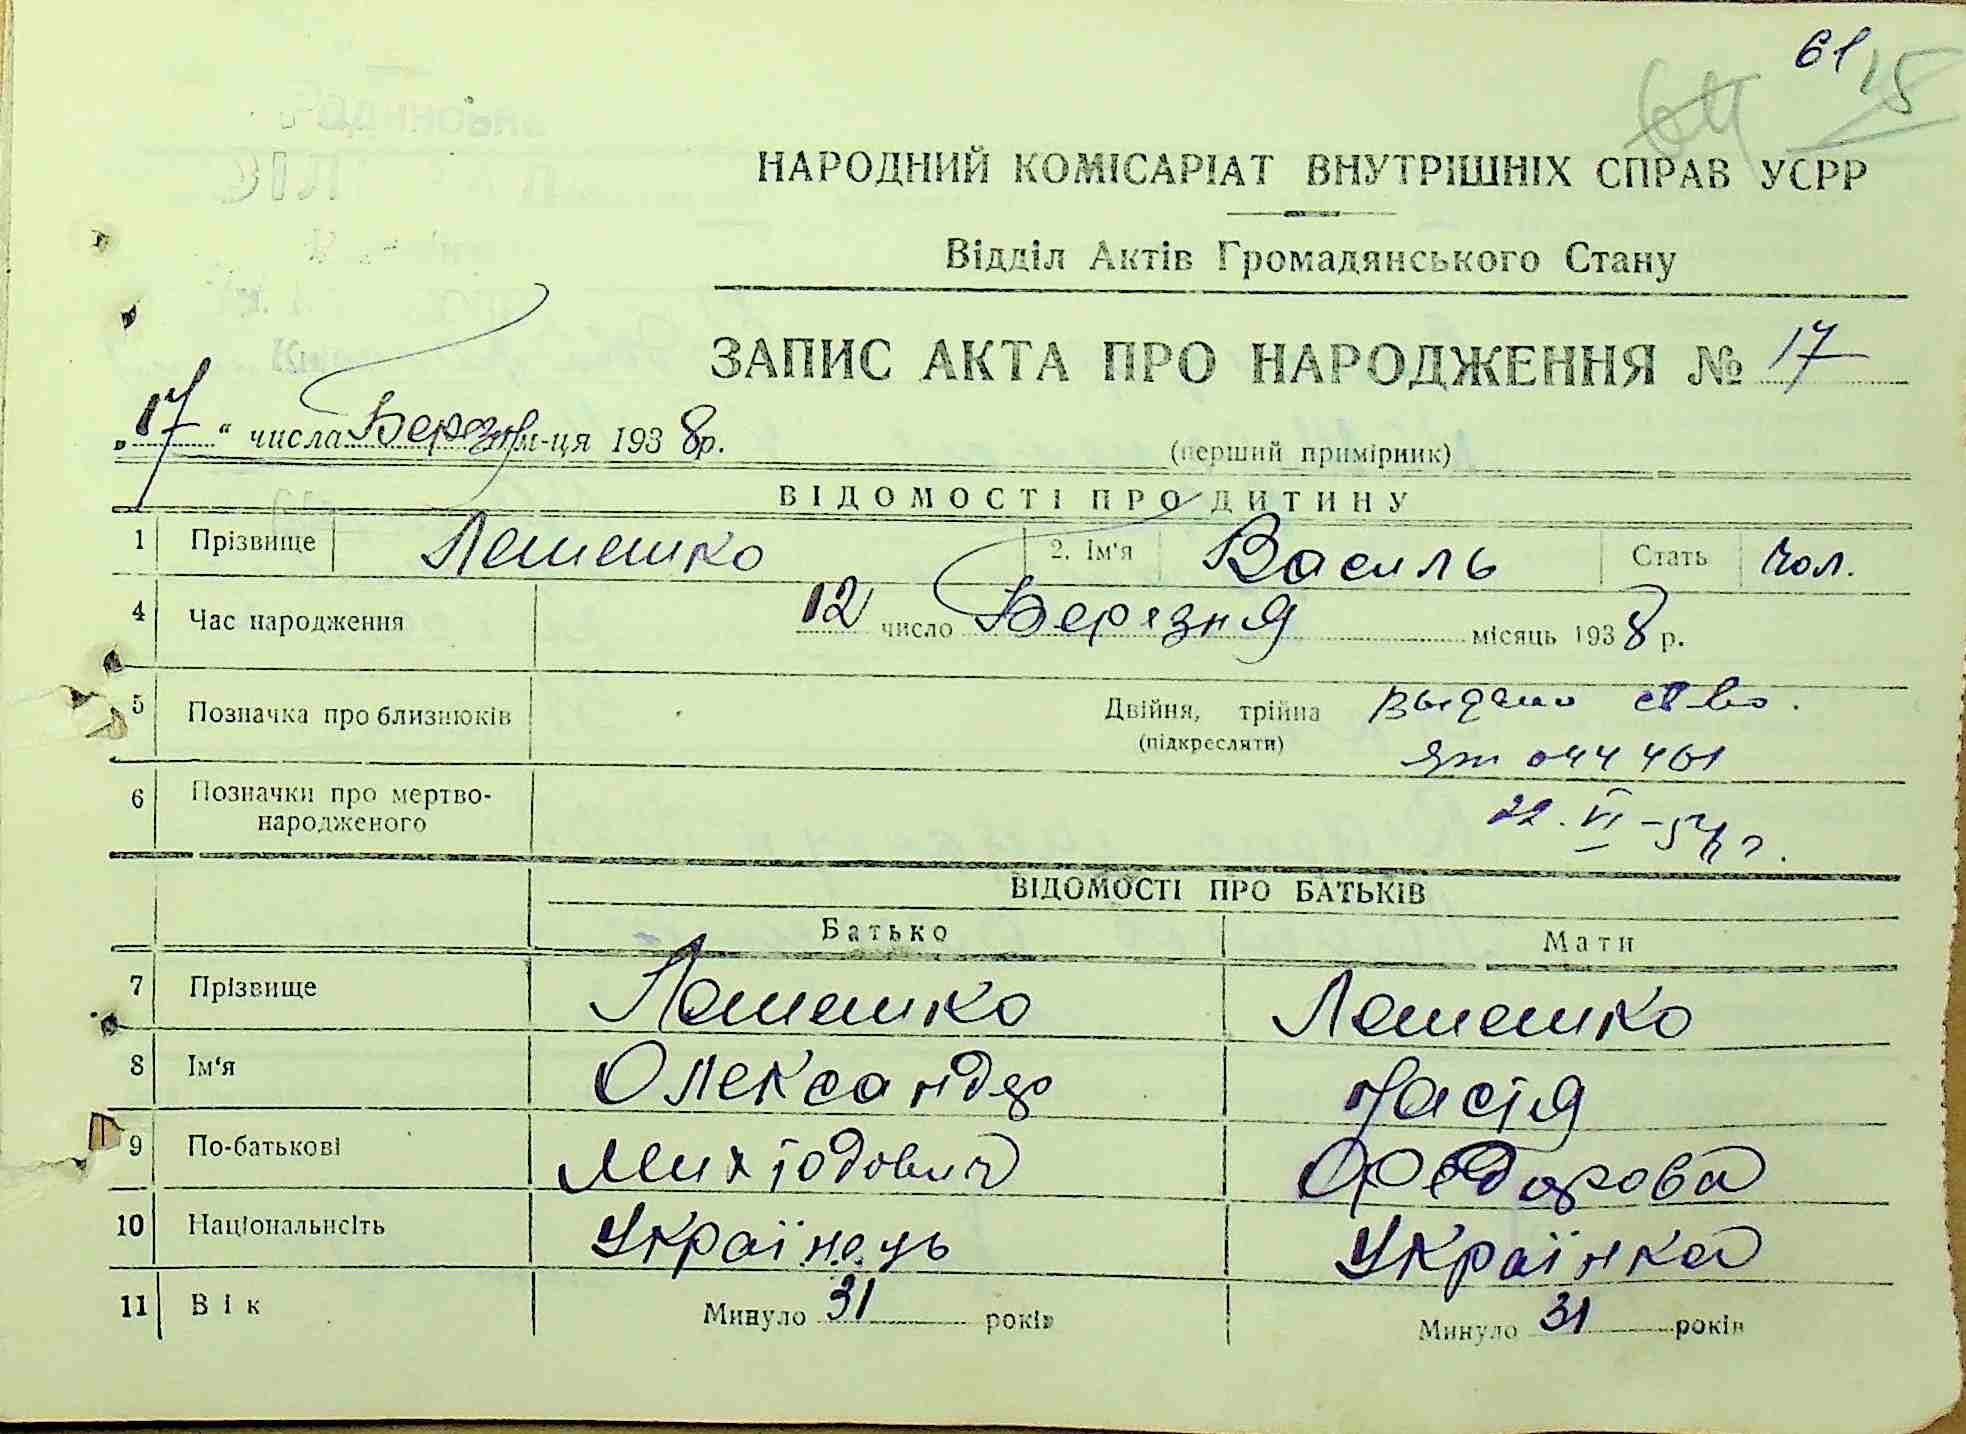 61 15
НАРОДНИЙ КОМІСАРІАТ ВНУТРІШНІХ СПРАВ УСРР
Відділ Актів Громадянського Стану
ЗАПИС АКТА ПРО НАРОДЖЕННЯ № 17
„17“ числа Березня м-ця 1938р.
(перший примірник)
ВІДОМОСТІ ПРО ДИТИНУ
1 Прізвище Лемешко 2. Ім'я Василь Стать Чол.
4 Час народження 12 число Березня місяць 1938 р.
5 Позначка про близнюків Двійня, трійна Выдано св-во.
(підкресляти) 044461
6 Позначки про мертво- 22. VI-54 г.
народженого
ВІДОМОСТІ ПРО БАТЬКІВ
Батько Мати
7 Прізвище Лемешко Лемешко
8 Ім'я Олександр Настя
9 По-батькові Федорова
10 Національнсіть Українець Українка
11 Вік Минуло 31 років Минуло 31 років